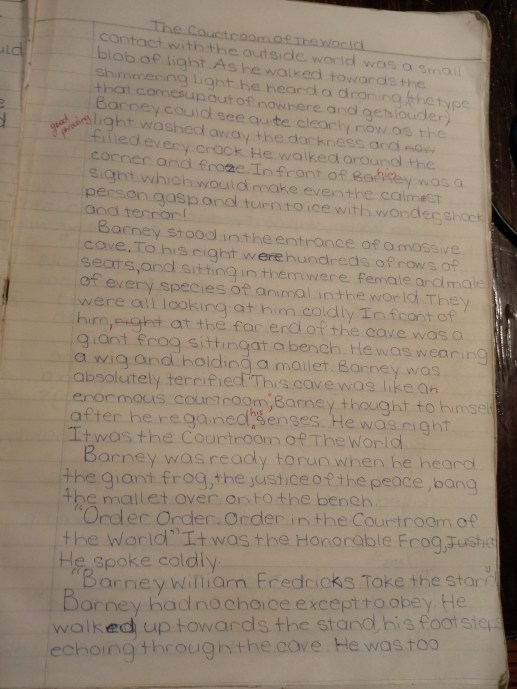 The Courtroom of the World
contact with the outside world was a small
blob of light. As he walked towards the
shimmering light he heard a droning (the type
that comes up out of nowhere and gets louder)
Barney could see quite clearly now as the
good phrasing light washed away the darkness and now
filled every crack. He walked around the
corner and froze. In front of Barney him was a
sight which would make even the calmest
person gasp and turn to ice with wonder, shock
and terror!
Barney stood in the entrance of a massive
cave. To his right were hundreds of rows of
seats, and sitting in them were female and male
of every species of animal in the world. They
were all looking at him coldly. In front of
him, right at the far end of the cave was a
giant frog sitting at a bench. He was wearing
a wig and holding a mallet. Barney was
absolutely terrified. "This cave was like an
enormous courtroom," Barney thought to himself
after he regained his senses. He was right.
It was the Courtroom of The World.
Barney was ready to run when he heard
the giant frog, the justice of the peace, bang
the mallet over on to the bench.
"Order Order. Order in the Courtroom of
the World" It was the Honorable Frog, Justice
He spoke coldly.
"Barney William Fredricks. Take the stand"
Barney had no choice except to obey. He
walked up towards the stand, his footsteps
echoing through the cave. He was too